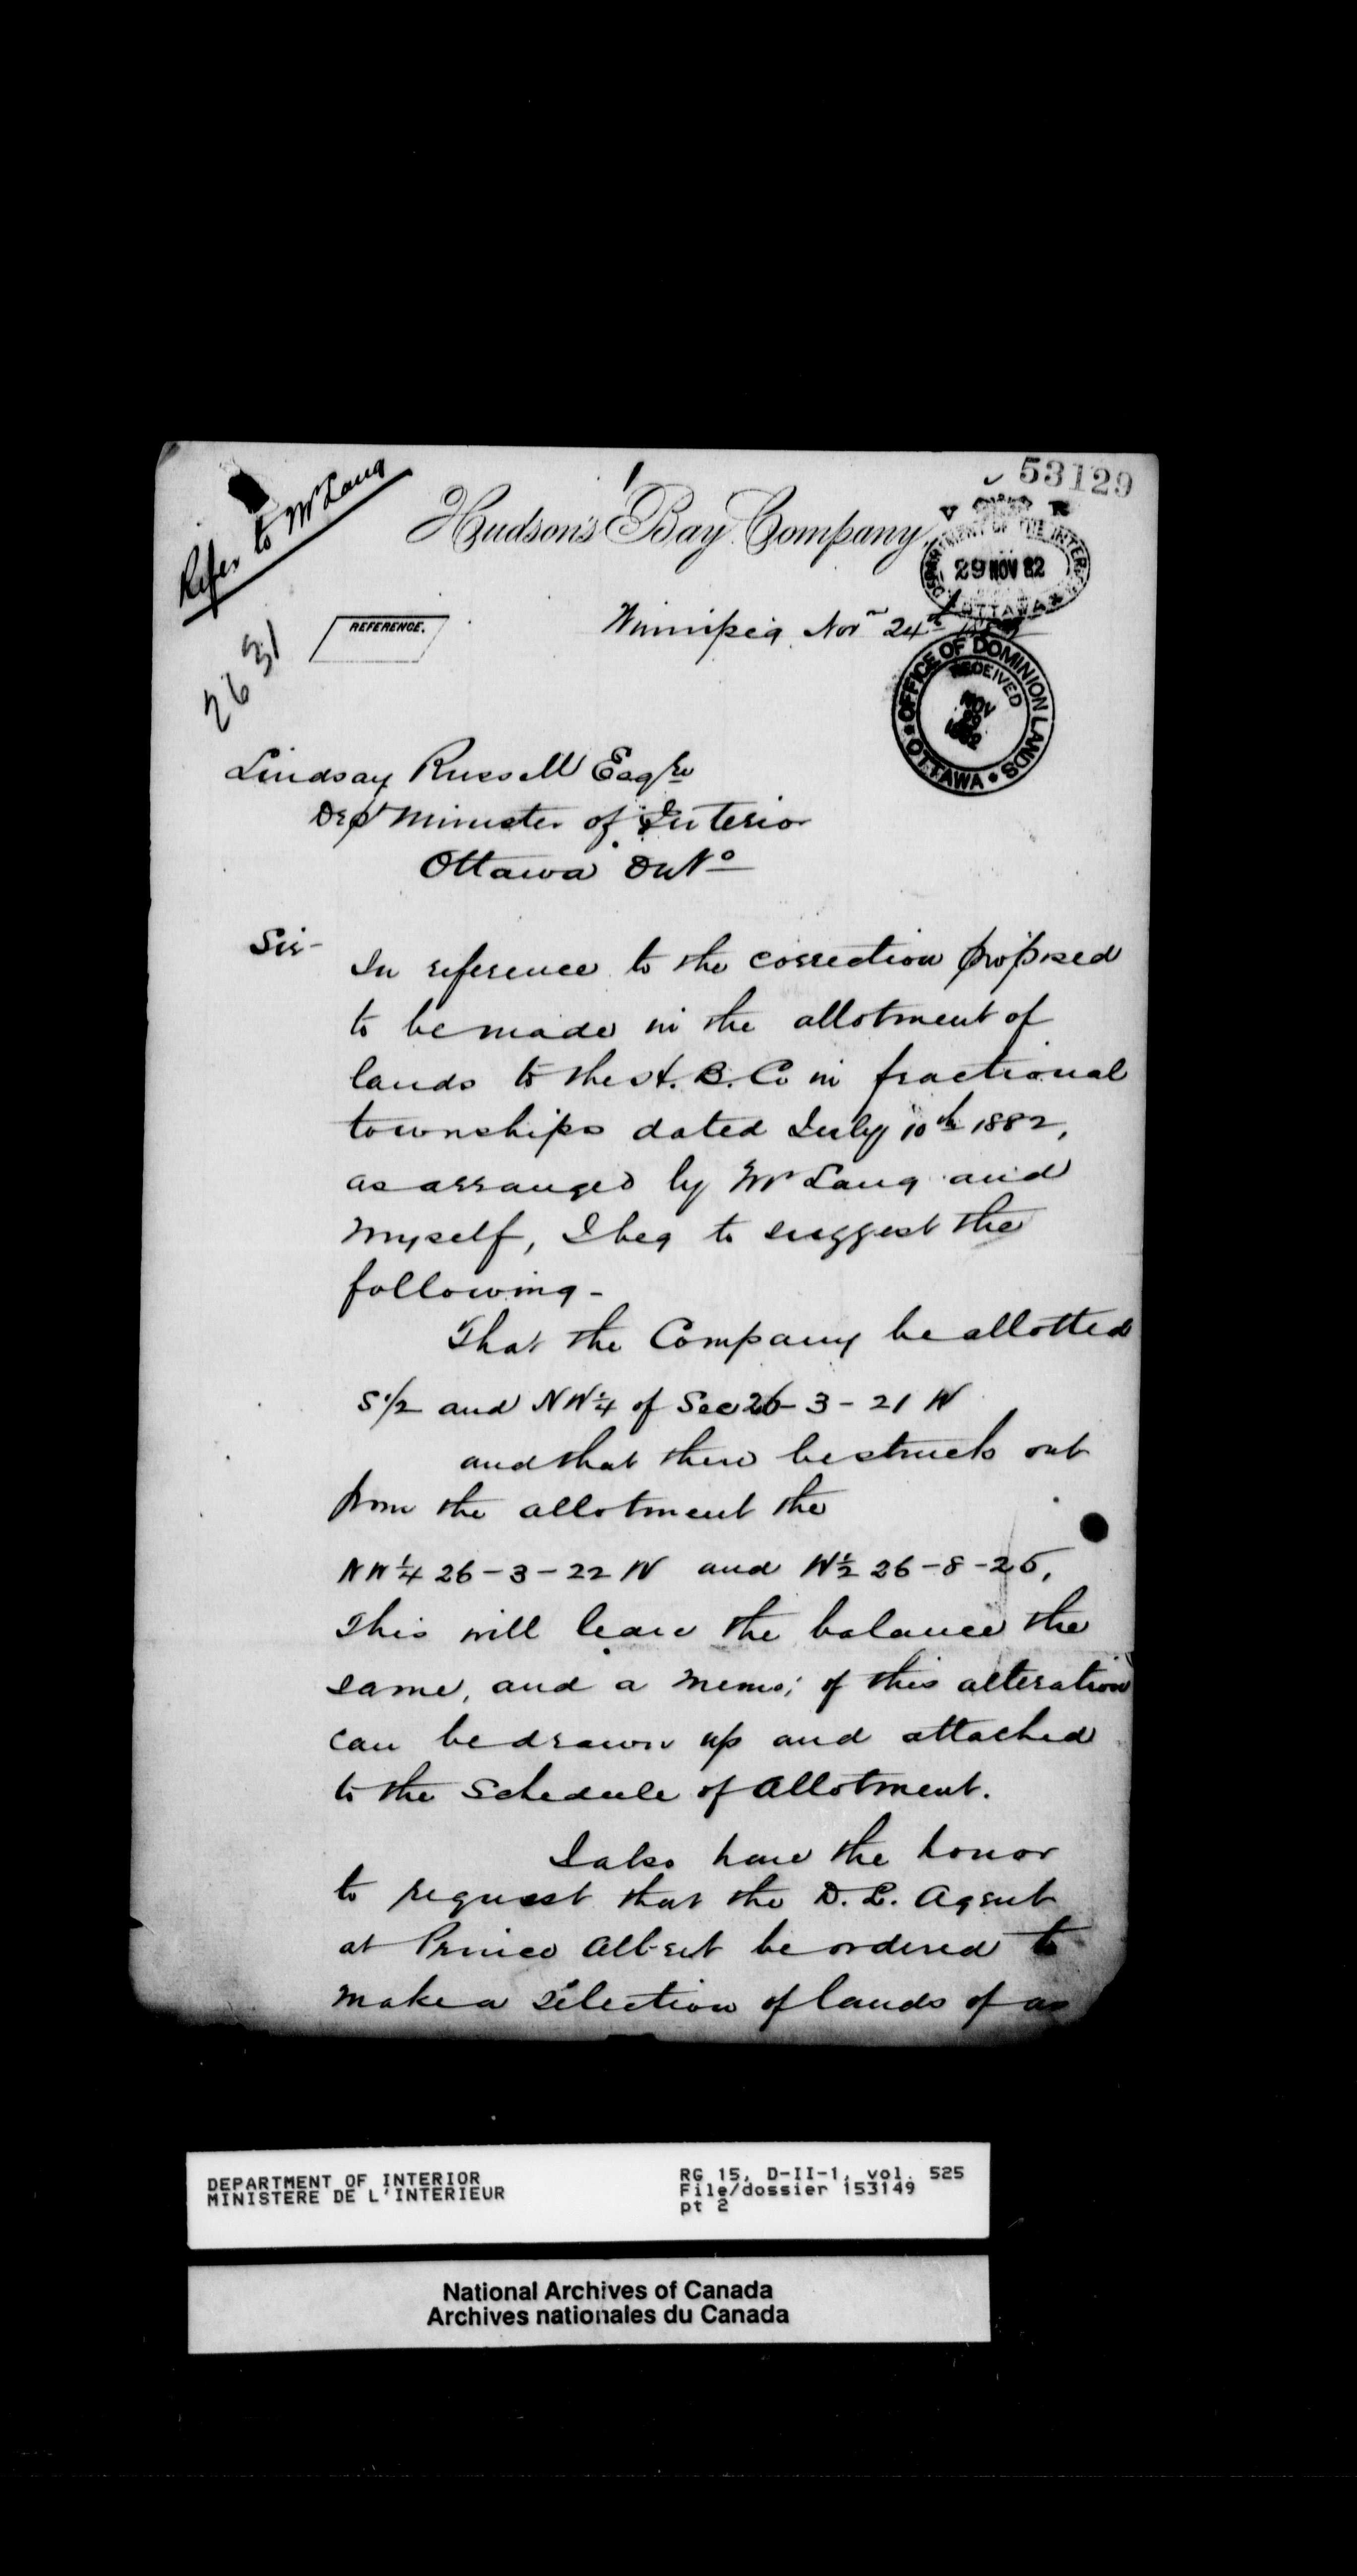 53129
Refer to Mr Lang
Hudson's Bay Company
V R
DEPARTMENT OF THE INTERIOR
29 NOV 82
OTTAWA
REFERENCE.
Winnipeg, Nov 24th
2631
OFFICE OF DOMINION LANDS
RECEIVED
NOV
29
1882
OTTAWA
Lindsay Russell Esqre
Dept Minister of Interior
Ottawa Onto
Sir-
In reference to the correction proposed
to be made in the allotment of
lands to the H. B. Co in fractional
townships dated July 10th 1882,
as arranged by Mr Lang and
myself, I beg to suggest the
following -
That the Company be allotted
S 1/2 and NW 1/4 of Sec 26 - 3 - 21 W
and that there be struck out
from the allotment the
NW 1/4 26 - 3 - 22 W and W 1/2 26 - 8 - 25,
This will leave the balance the
same, and a memo; of this alteration
can be drawn up and attached
to the Schedule of Allotment.
I also have the honor
to request that the D. L. Agent
at Prince Albert be ordered to
make a selection of lands of as
DEPARTMENT OF INTERIOR
MINISTERE DE L'INTERIEUR
RG 15, D-II-1, vol. 525
File/dossier 153149
pt 2
National Archives of Canada
Archives nationales du Canada